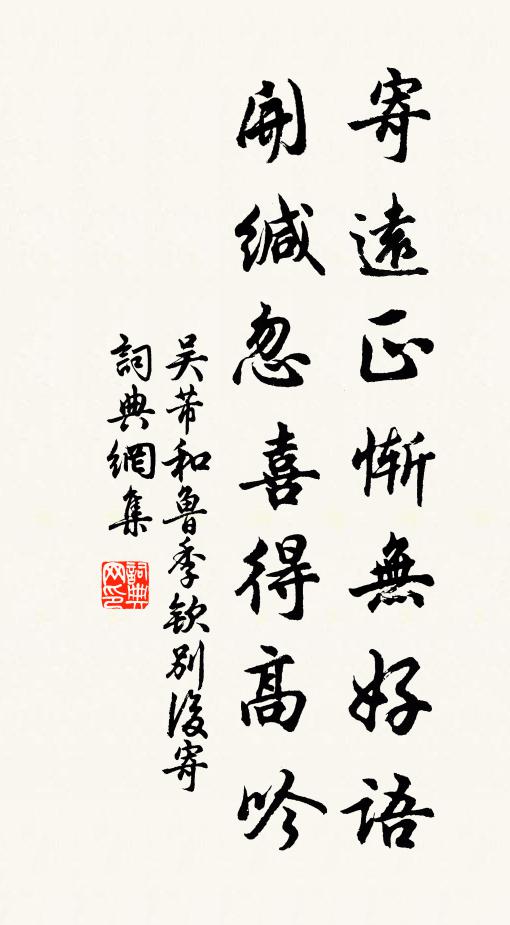 寄遠正慚無好語
開緘忽喜得高吟
吴芾和魯季欽别後寄
詞典網集
詞典网印